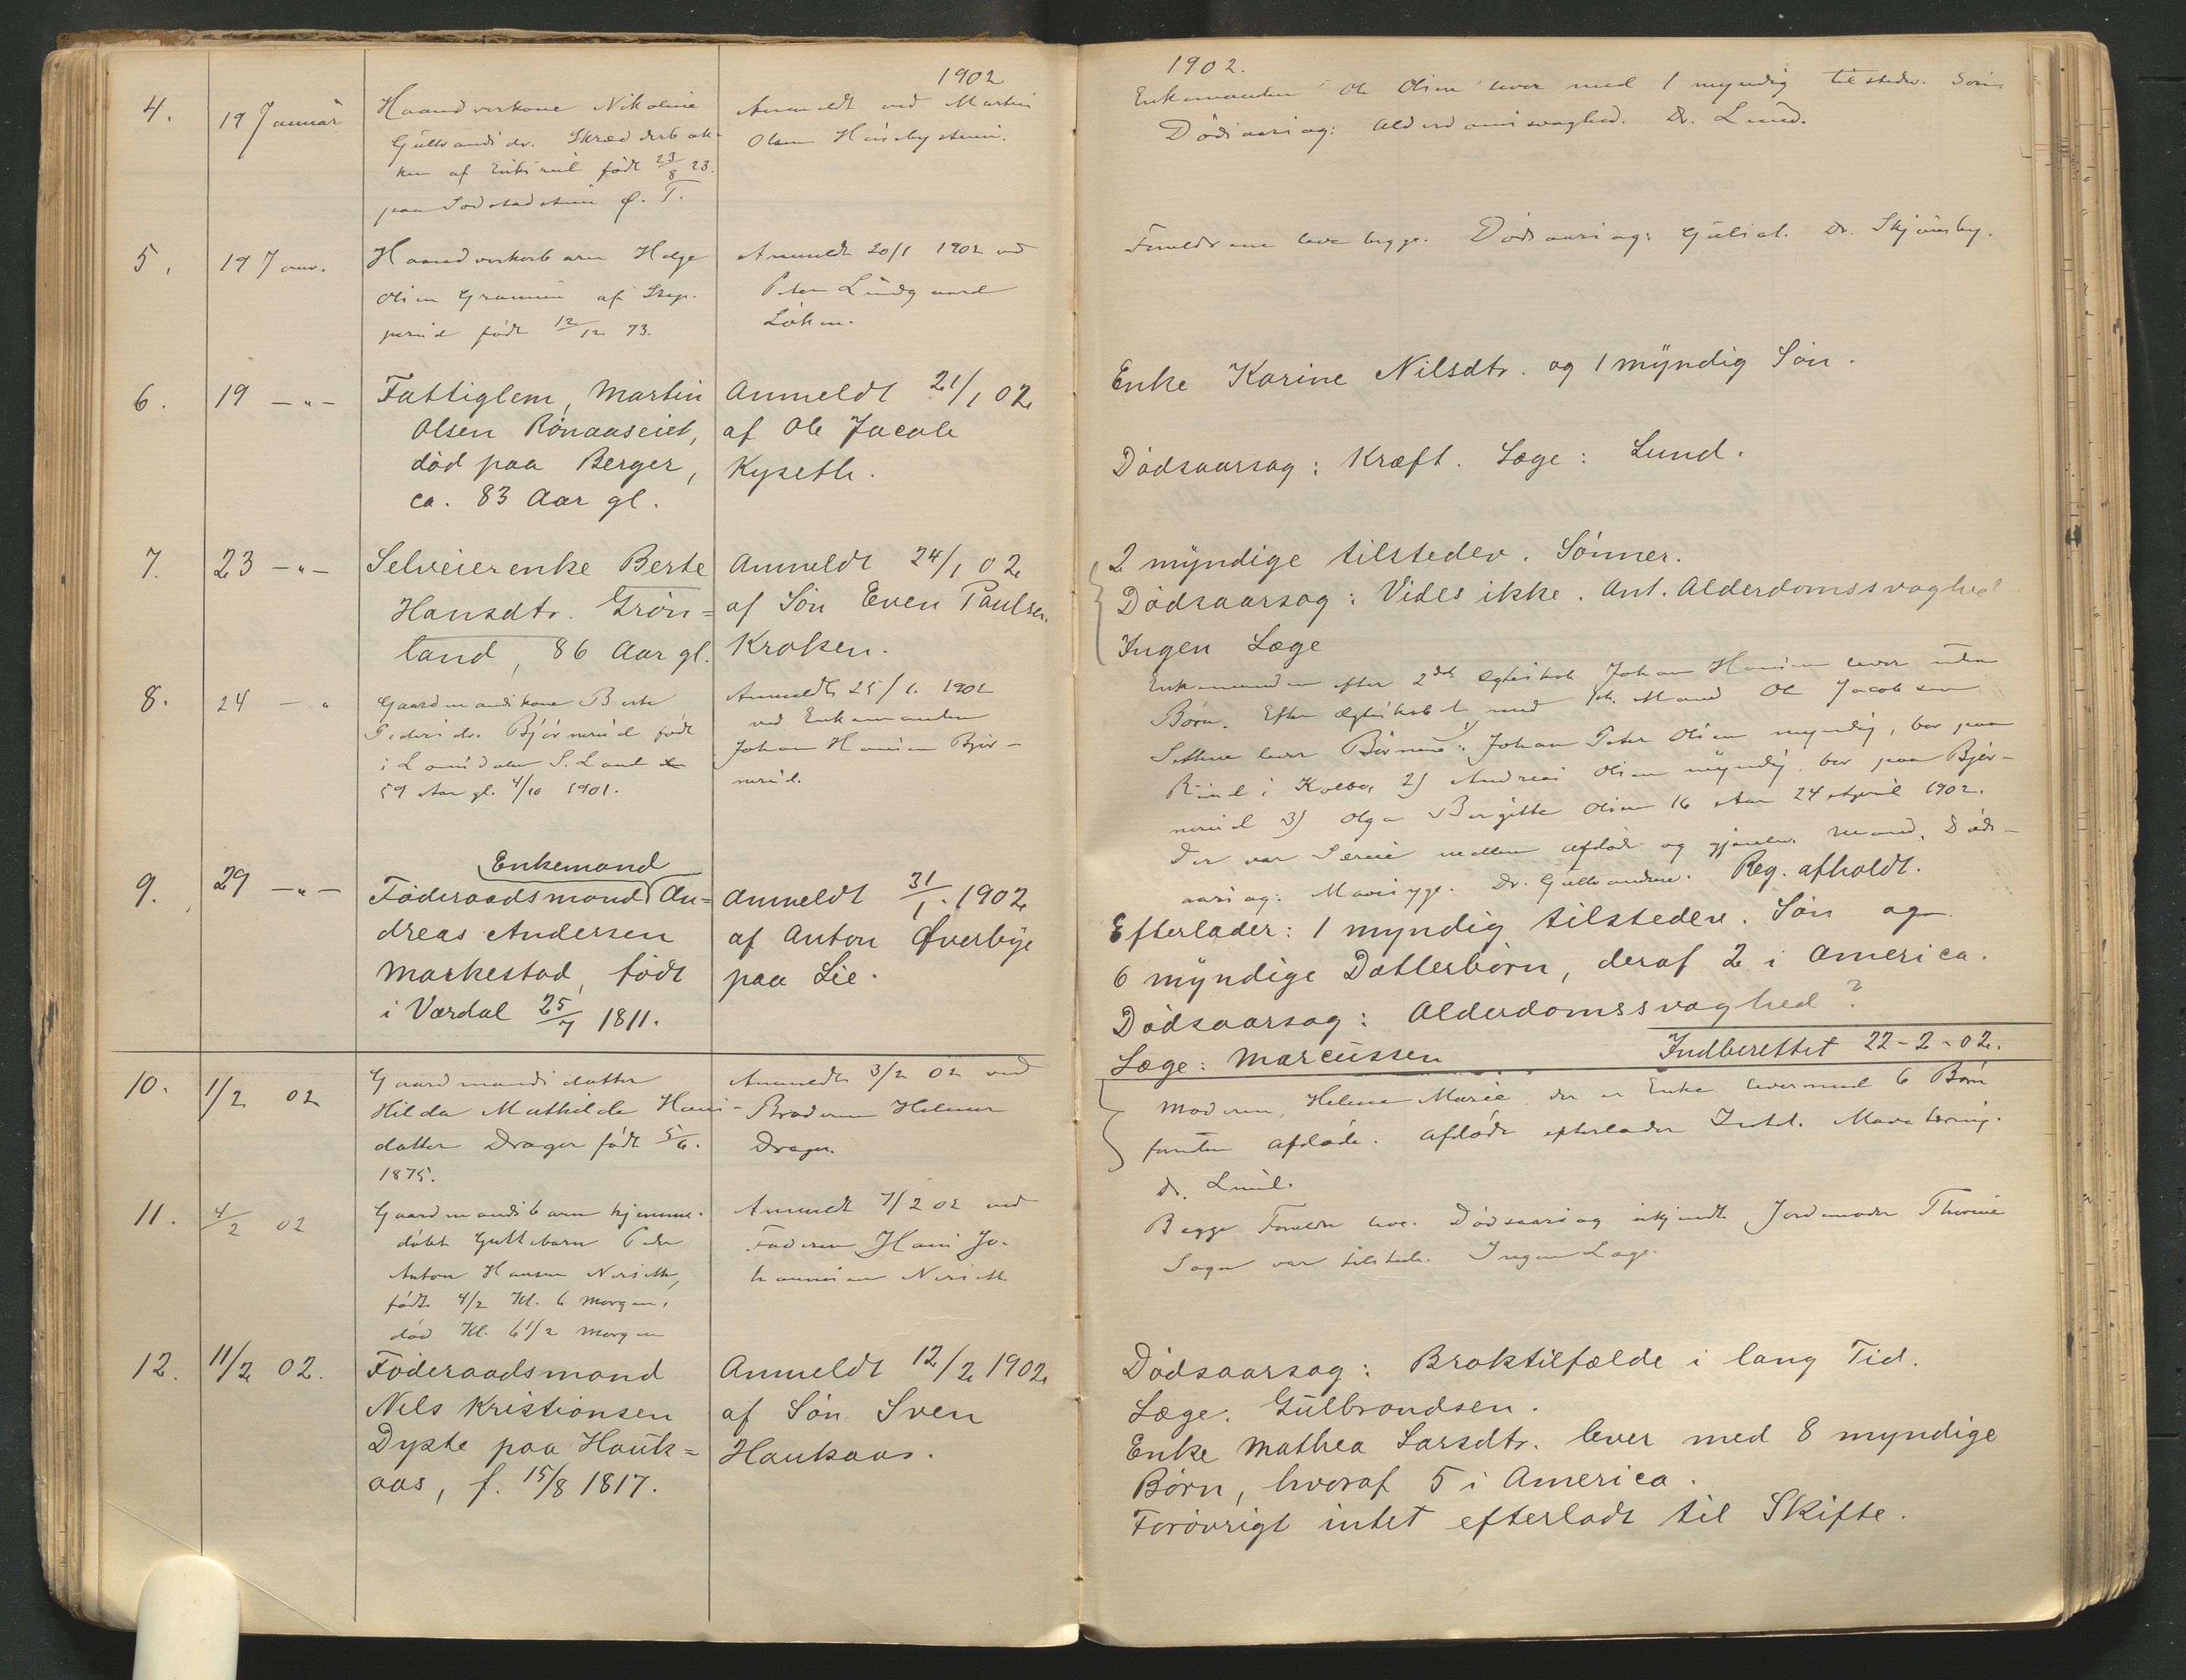 1902
4. 19 Januar
Haandverkone Nikoline
Gulbrandsdr. Skrædderbak-
ken af født 23/8 23.
paa Ø. T.
Anmeldt ved Martin
Olsen
5. 19 Janv.
Haandverkerbarn Helge
Olsen af
født 12/12 93.
Anmeldt 20/1 1902 ved
Peter Lundgaard
Løken.
6. 19 -"-
Fattiglem, Martin
Olsen Rönaaseiet,
död paa Berger,
ca. 83 Aar gl.
Anmeldt 21/1 02
af Ole Jacob
Kyseth.
7. 23 -"-
Selveierenke Berte
Hansdtr. Grön=
land, 86 Aar gl.
Anmeldt 24/1 02
af Sön Even Paulsen
Kroken.
8. 24 - "
Gaardmandskone Berte
Pedersdr. Björnerud født
i S. Land
59 Aar gl. 4/10 1901.
Anmeldt 25/1. 1902
ved Enkemanden
Johan Hansen Björ-
nerud.
9. 29 -"-
Enkemand
Föderaadsmand An=
dreas Andersen
Markestad, födt
i Værdal 25/7 1811.
Anmeldt 31/1. 1902
af Anton Øverbye
paa Lie.
10. 1/2 02
Gaardmandsdatter
Hilda Mathilde Hans-
datter Drager født 5/6.
1875.
Anmeldt 3/2 02 ved
Broderen Helmer
Drager.
11. 4/2 02
Gaardmandsbarn hjemme-
døbt Guttebarn Peder
Anton Hansen Neriseth,
født 4/2 Kl. 6 Morgen,
død Kl. 6 1/2 Morgen
Anmeldt 7/2 02 ved
Faderen Hans Jo-
hannsen Neriseth
12. 11/2 02.
Föderaadsmand
Nils Kristiansen
Dyste paa Hauk=
aas, f. 15/8 1817.
Anmeldt 12/2 1902
af Sön Sven
Haukaas.
1902.
Enkemanden Ole Olsen lever med 1 myndig tilstedev. Søn
Dødsaarsag: Alderdomssvaghed. Dr. Lund.
Forældrene leve begge. Dødsaarsag: Gulsot. Dr. Skjønsby.
Enke Karine Nilsdtr. og 1 myndig Sön.
Dödsaarsag: Kræft. Læge: Lund.
2 myndige tilstedev. Sönner.
Dödsaarsag: Vides ikke. Ant. Alderdomssvaghed
Ingen Læge
Enkemanden efter 2det Ægteskab Johan Hansen lever uden
Børn. Efter Ægteskabet med Mand Ole Jacobsen
lever Børnene: Johan Peter Olsen myndig, bor paa
i Kolbo, 2) Andreas Olsen myndig, bor paa Björ-
nerud 3) Olga Birgitte Olsen 16 Aar 24 April 1902.
Der var mellem afdøde og gjenlev. Mand. Døds-
aarsag: Mavesyge. Dr. Gulbrandsen. Reg. afholdt.
Efterlader: 1 myndig tilstedev. Sön og
6 myndige Datterbörn, deraf 2 i America.
Dödsaarsag: Alderdomssvaghed?
Læge: Marcussen
Indberettet 22-2-02.
Moderen, Helene Marie der er Enke lever med 6 Børn
foruden afdøde. Afdøde efterlader Intet. Mavetæring.
Dr. Lund.
Begge Forældre leve. Dødsaarsag ukjendt Jordemoder Thorine
var tilstede. Ingen Læge.
Dödsaarsag: Broktilfælde i lang Tid.
Læge. Gulbrandsen.
Enke Mathea Larsdtr. lever med 8 myndige
Börn, hvoraf 5 i America.
Forövrigt intet efterladt til Skifte.